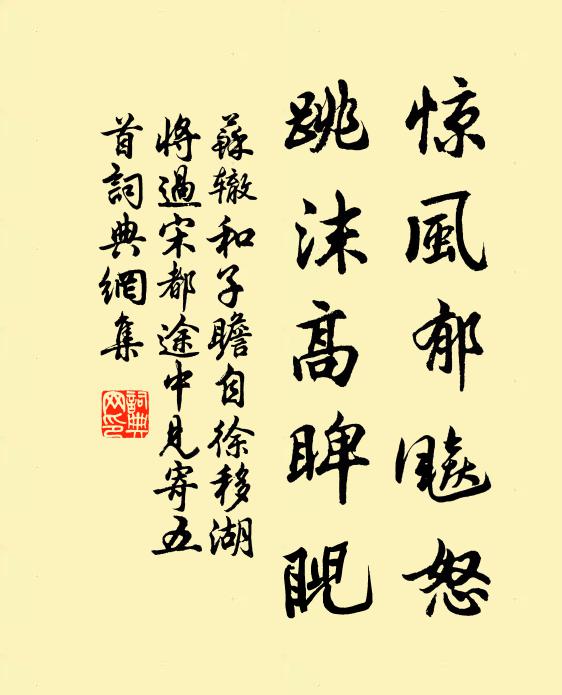 惊風郁飈怒
跳沫高睥睨
蘇辙和子瞻自徐移湖
將過宋都途中見寄五
首詞典網集
詞典
网印